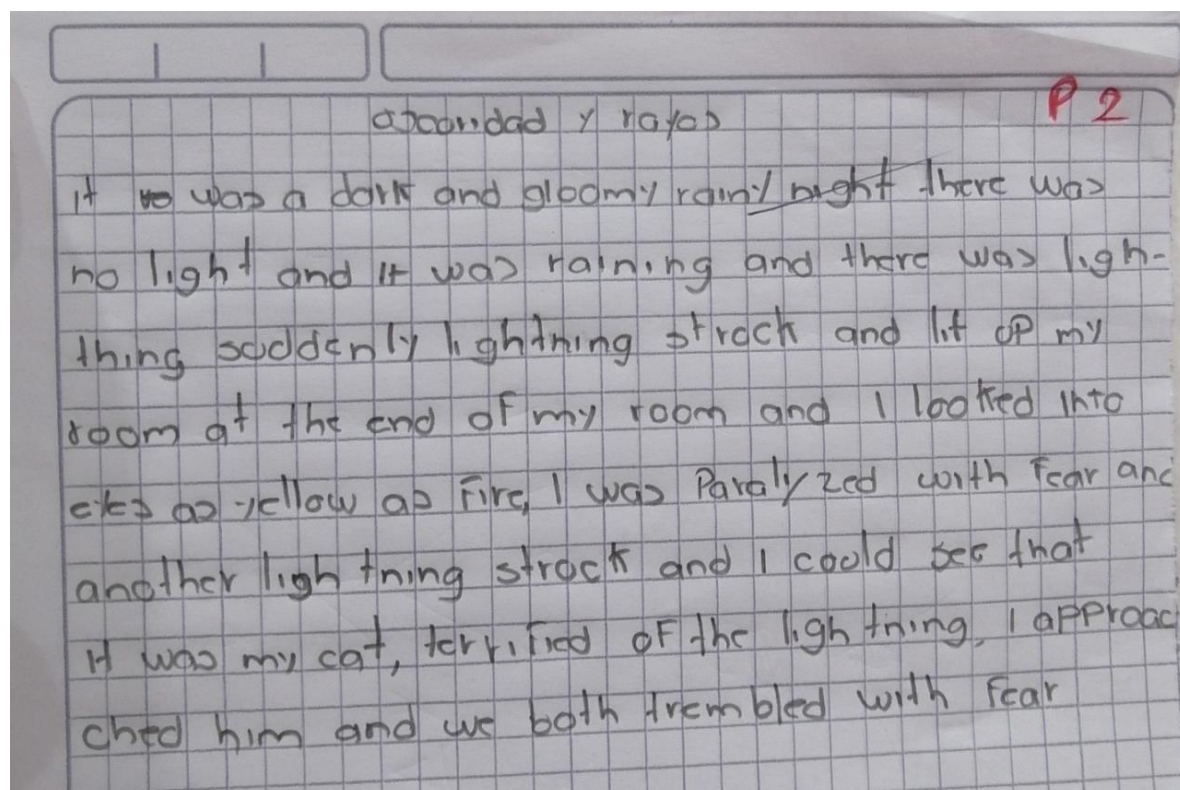 oscuridad y rayos
P 2
it was a dark and gloomy rainy night there was
no light and it was raining and there was ligh-
thing suddenly lightning struck and lit up my
room at the end of my room and I looked into
eyes as yellow as fire, I was Paralyzed with fear and
another lightning struck and I could see that
it was my cat, terrified of the lightning, I approac
ched him and we both trembled with fear